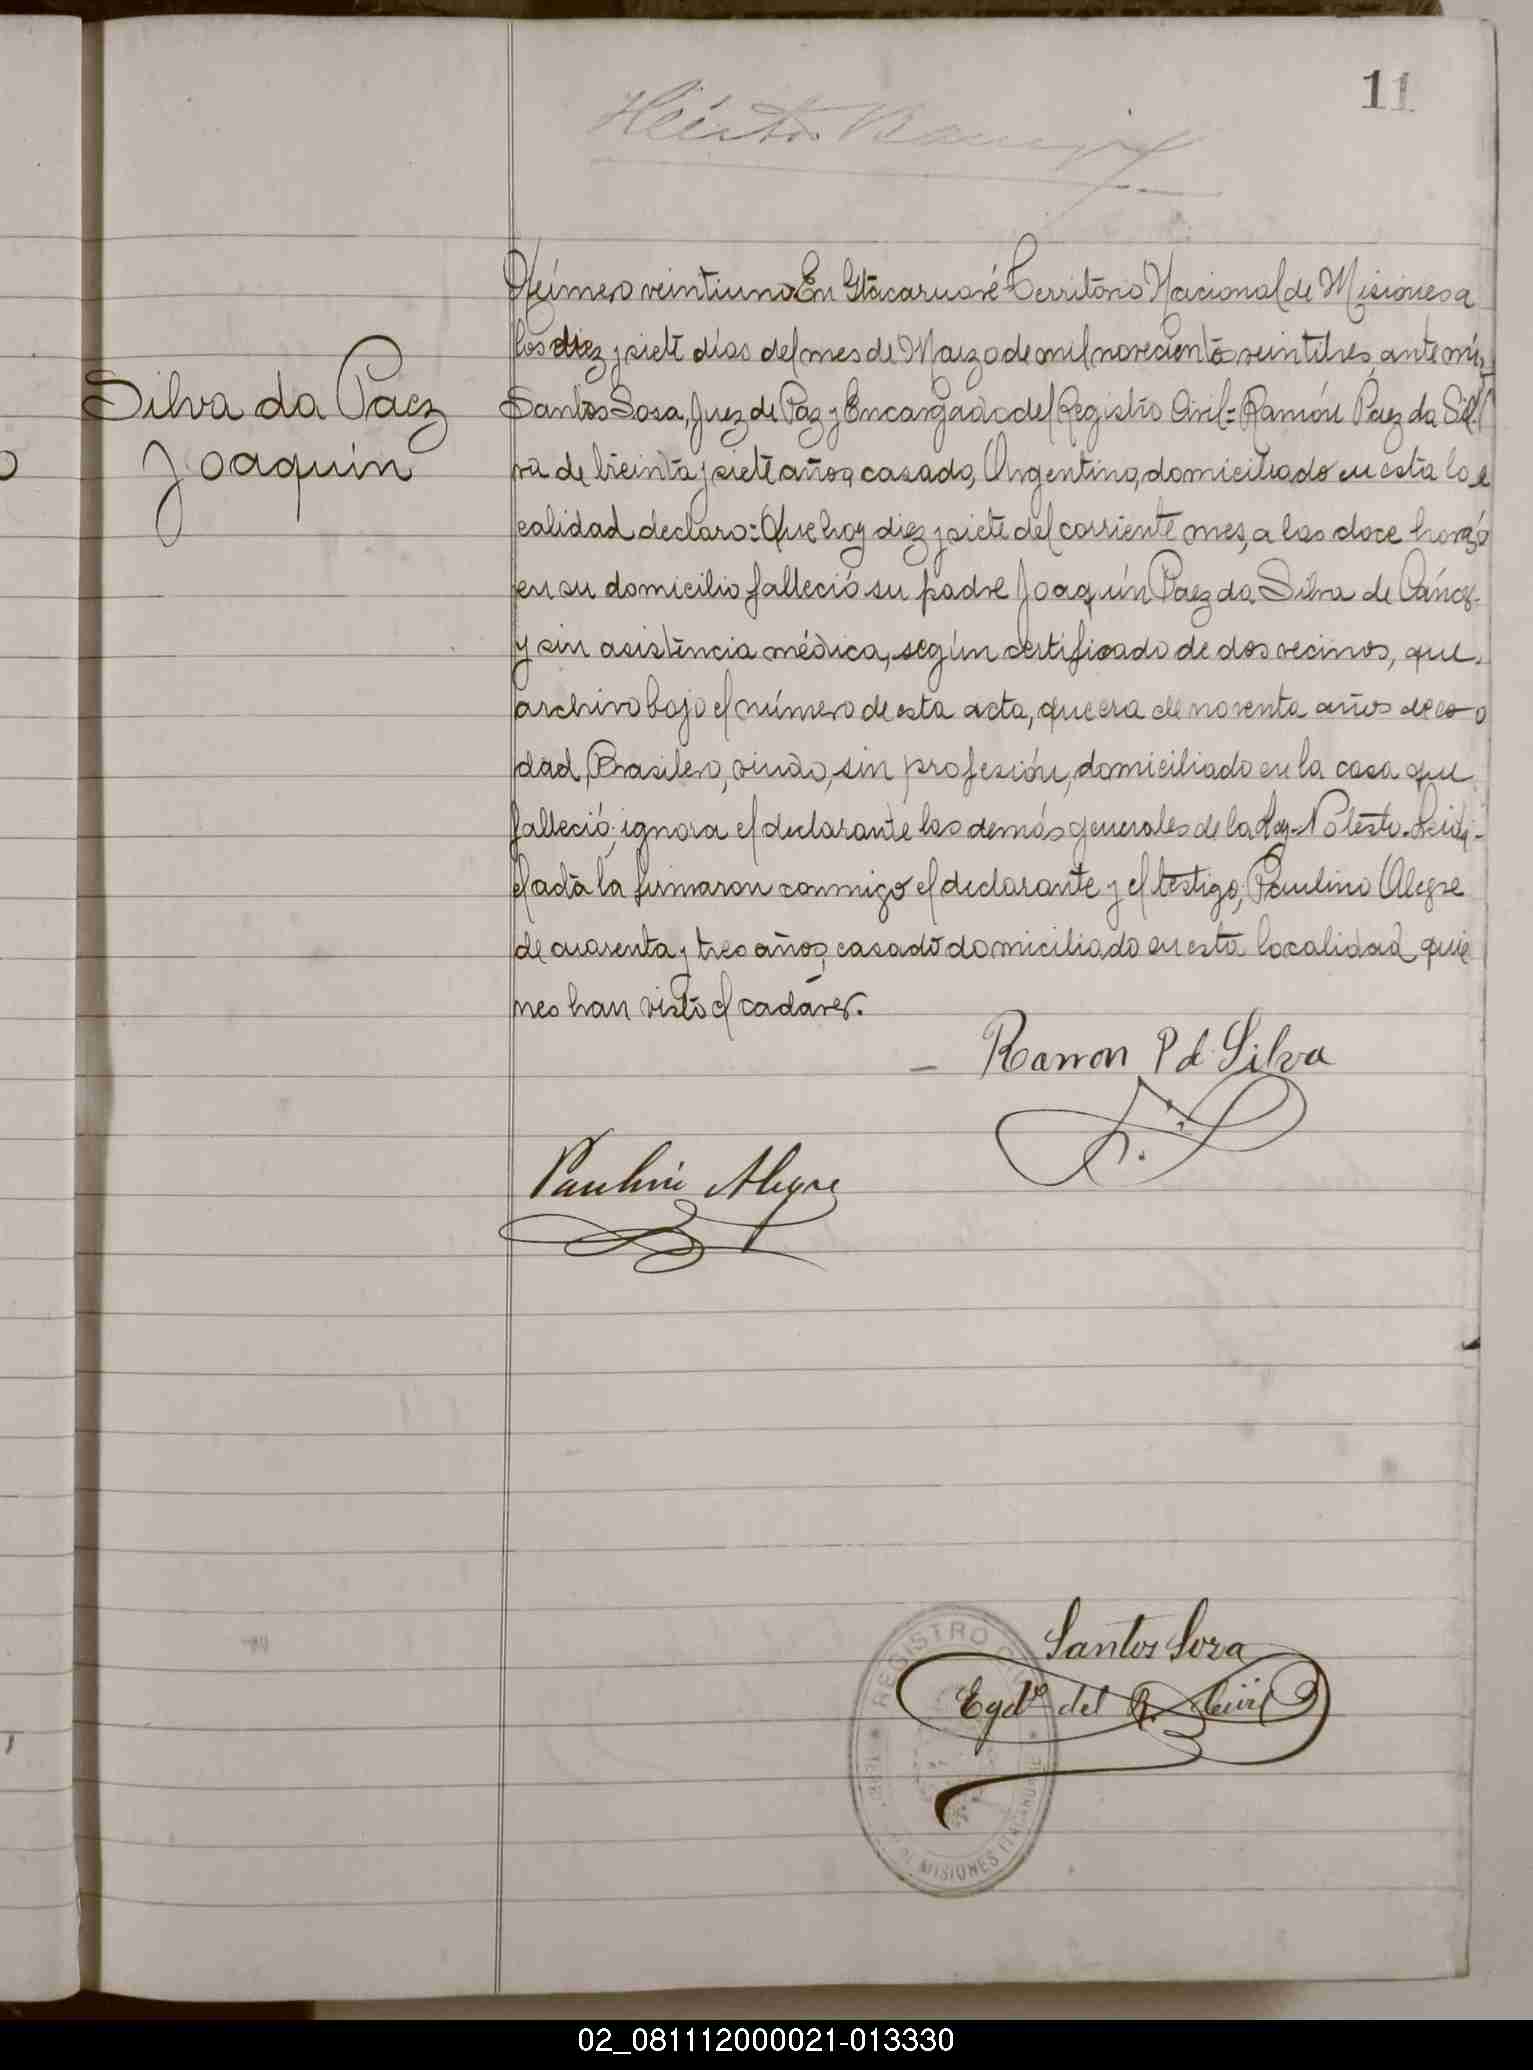 11
Héctor Ramírez
Número veintiuno En Itacaruaré Territorio Nacional de Misiones a
los diez y siete días del mes de Marzo de mil novecientos veintitres, ante mí,
Silva da Paez
Joaquín
Santos Sosa, Juez de Paz y Encargado del Registro Civil= Ramón Paez da Sil-
va de treinta y siete años, casado, Argentino, domiciliado en esta lo
calidad declaro: Que hoy diez y siete del corriente mes, a las doce horas
en su domicilio falleció su padre Joaquín Paez da Silva de Cáncer
y sin asistencia médica, según certificado de dos vecinos, que
archivo bajo el número de esta acta, que era de noventa años de e
dad, Brasilero, viudo, sin profesión, domiciliado en la casa que
falleció; ignora el declarante las demás generales de la Ley- No testó. Leida
el acta la firmaron conmigo el declarante y el testigo, Paulino Alegre
de cuarenta y tres años, casado domiciliado en esta localidad quie
nes han visto el cadáver.
Ramon P d Silva
Paulino Alegre
Santos Soza
Egdo del R. Civil
REGISTRO
DE MISIONES
02_081112000021-013330